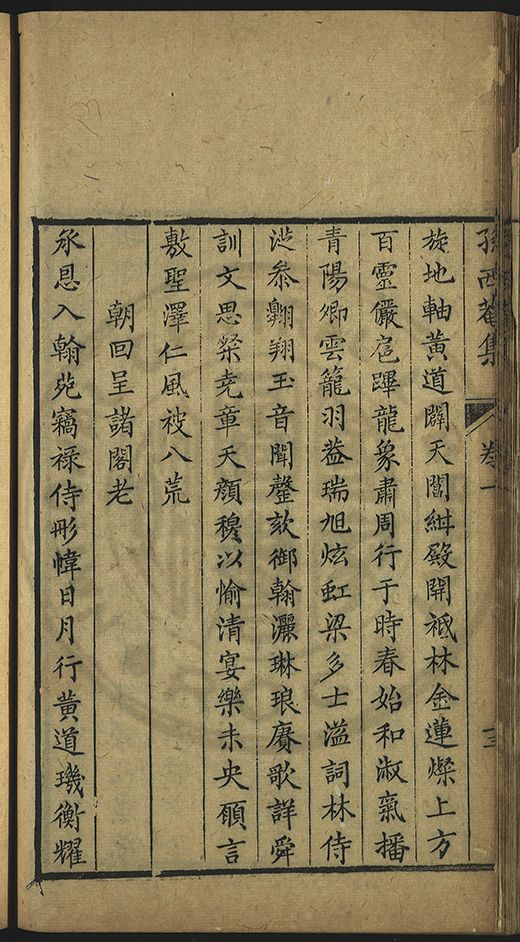 孫西菴集 卷一 十三
旋地軸黃道闢天閶紺殿開祇林金蓮燦上方
百靈儼扈蹕龍象肅周行于時春始和淑氣播
青陽卿雲籠羽葢瑞旭炫虹梁多士溢詞林侍
從叅翱翔玉音聞謦欬御翰灑琳琅賡歌詳舜
訓文思粲堯章天顔穆以愉清宴樂未央願言
敷聖澤仁風被八荒
朝回呈諸閣老
承恩入翰苑竊祿侍彤幃日月行黃道璣衡耀